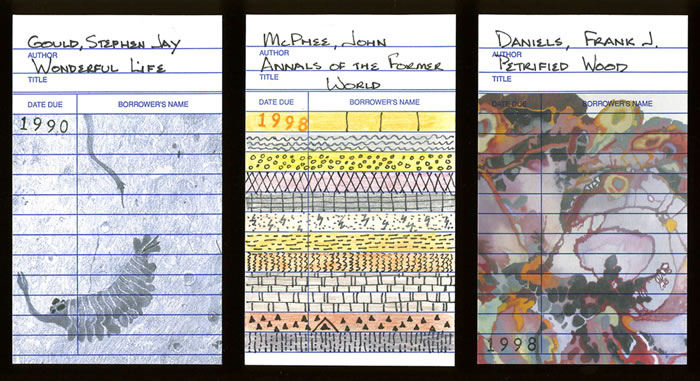 GOULD, STEPHEN JAY
AUTHOR
WONDERFUL LIFE
TITLE
DATE DUE BORROWER'S NAME
1990
MCPHEE, JOHN
AUTHOR
ANNALS OF THE FORMER
TITLE
WORLD
DATE DUE BORROWER'S NAME
1998
DANIELS, FRANK J.
AUTHOR
PETRIFIED WOOD
TITLE
DATE DUE BORROWER'S NAME
1998